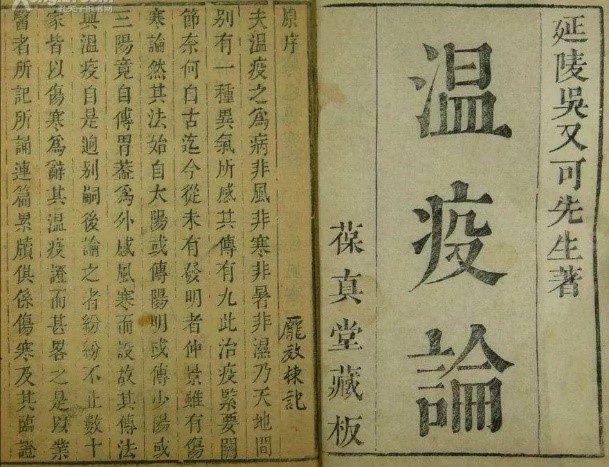 延陵吳又可先生著
温疫論
葆真堂藏板
原序
夫温疫之為病非風非寒非暑非濕乃天地間
别有一種異氣所感其傳有九此治疫緊要關
節奈何自古迄今從未有發明者仲景雖有傷
寒論然其法始自太陽或傳陽明或傳少陽或
三陽竟自傳胃蓋為外感風寒而設故其傳法
與温疫自是逈别嗣後論之者紛紛不止數十
家皆以傷寒為辭其温疫證而甚畧之是以業
醫者所記所誦連篇累牘俱係傷寒及其臨證
龐效棟記